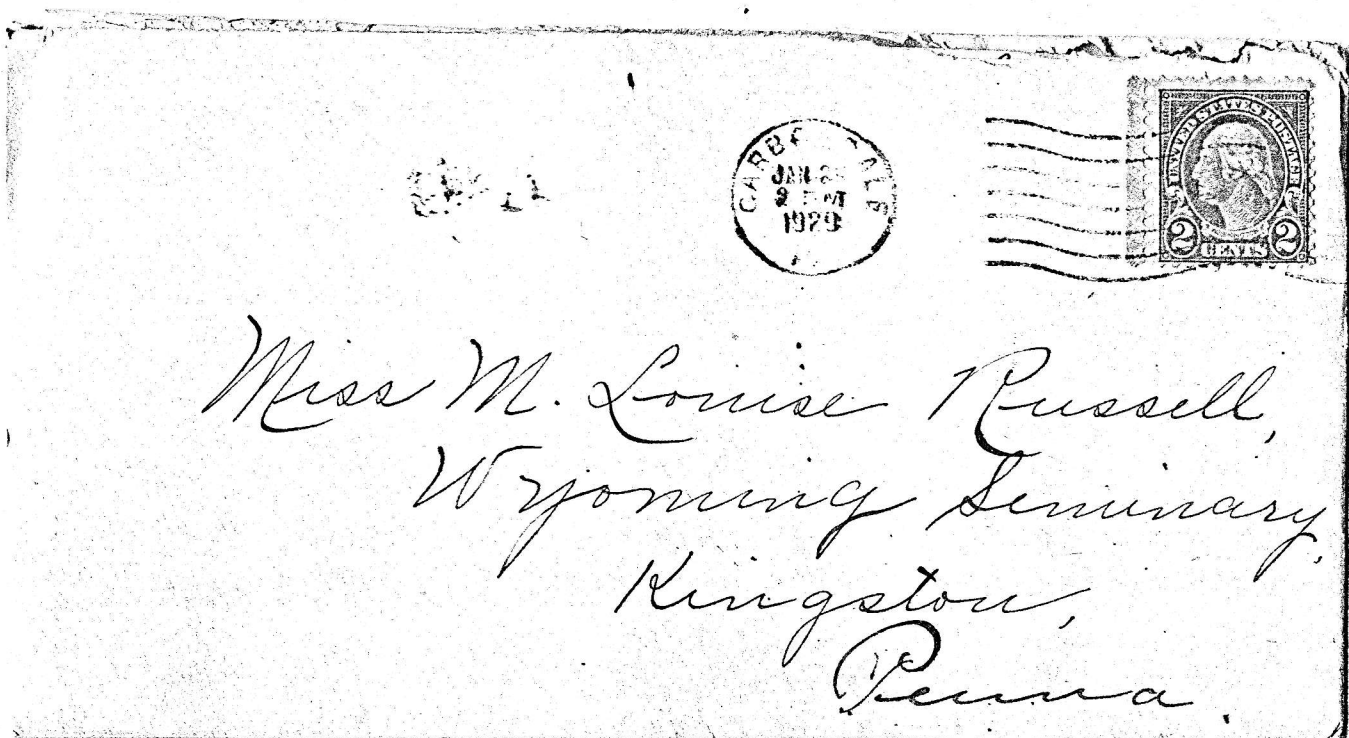 JAN 2
2 PM
1929
UNITED STATES POSTAGE
2 CENTS 2
Miss M. Louise Russell,
Wyoming Seminary,
Kingston,
Penna.